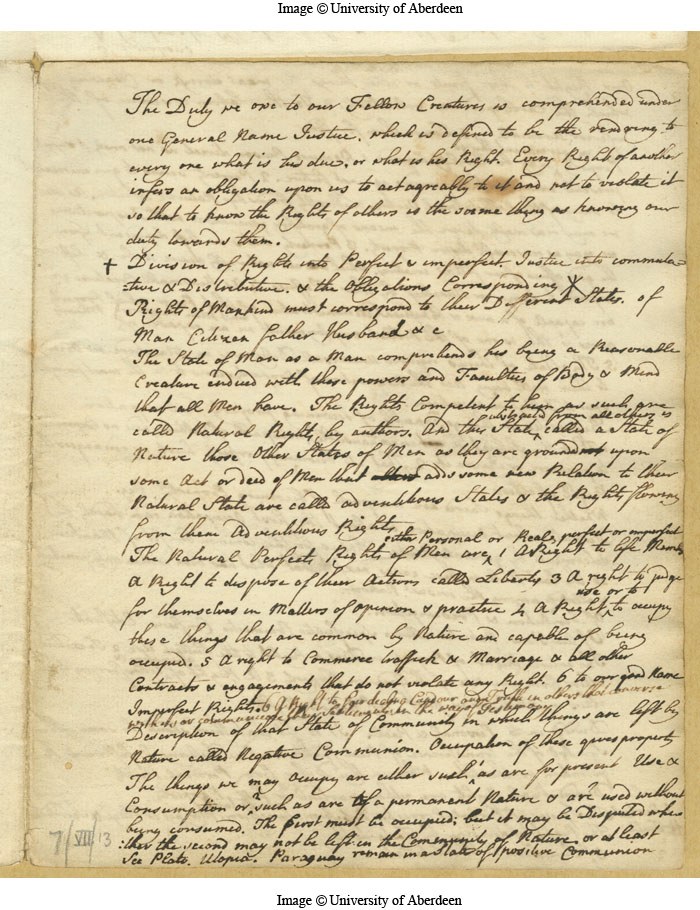 Image © University of Aberdeen
The Duty we owe to our Fellow Creatures is comprehended under
one General Name Justice. which is defined to be the rendring to
every one what is his due, or what is his Right. Every Right of another
infers an obligation upon us to act agreably to it and not to violate it
so that to know the Rights of others is the same thing as knowing our
duty towards them.
+ Division of Rights into Perfect & imperfect. Justice into commuta-
-tive & Distributive. & the Obligations Corresponding X
Rights of Mankind must correspond to their Different States. of
Man Citizen father Husband & c
The State of Man as a Man comprehends his being a Reasonable
Creature indued with those powers and Faculties of Body & Mind
that all Men have. The Rights Competent to him as such are
called Natural Rights, by authors. And this State called a State of
Nature those Other States of Men as they are ground upon
some Act or deed of Men that adds some new Relation to their
Natural State are called adventitious States & the Rights flowing
from them Adventitious Rights
either Personal or Real, perfect or imperfect
The Natural Perfect Rights of Men are 1 A Right to life
A Right to dispose of their Actions called Liberty 3 A right to judge
use or to
for themselves in Matters of opinion & practice 4 A Right to occupy
these things that are common by Nature and capable of being
occupied. 5 A right to Commerce traffick & Marriage & all other
Contracts & engagements that do not violate any Right. 6 to our good Name
Imperfect Rights 6 A Right to fair dealing Candour and Truth in others that converse
with us or communicate their Sentiments in the way of Testimony
Description of that State of Community in which things are left by
Nature called Negative Communion. Occupation of these gives property
The things we may occupy are either such 1 as are for present Use &
Consumption or 2 such as are of a permanent Nature & are used without
being consumed. The first must be occupied; but it may be Disputed whe
:ther the second may not be left in the Community of Nature, or at least
See Plato. Utopia. Paraguay remain in a state of positive Communion
7/VII/13
Image © University of Aberdeen